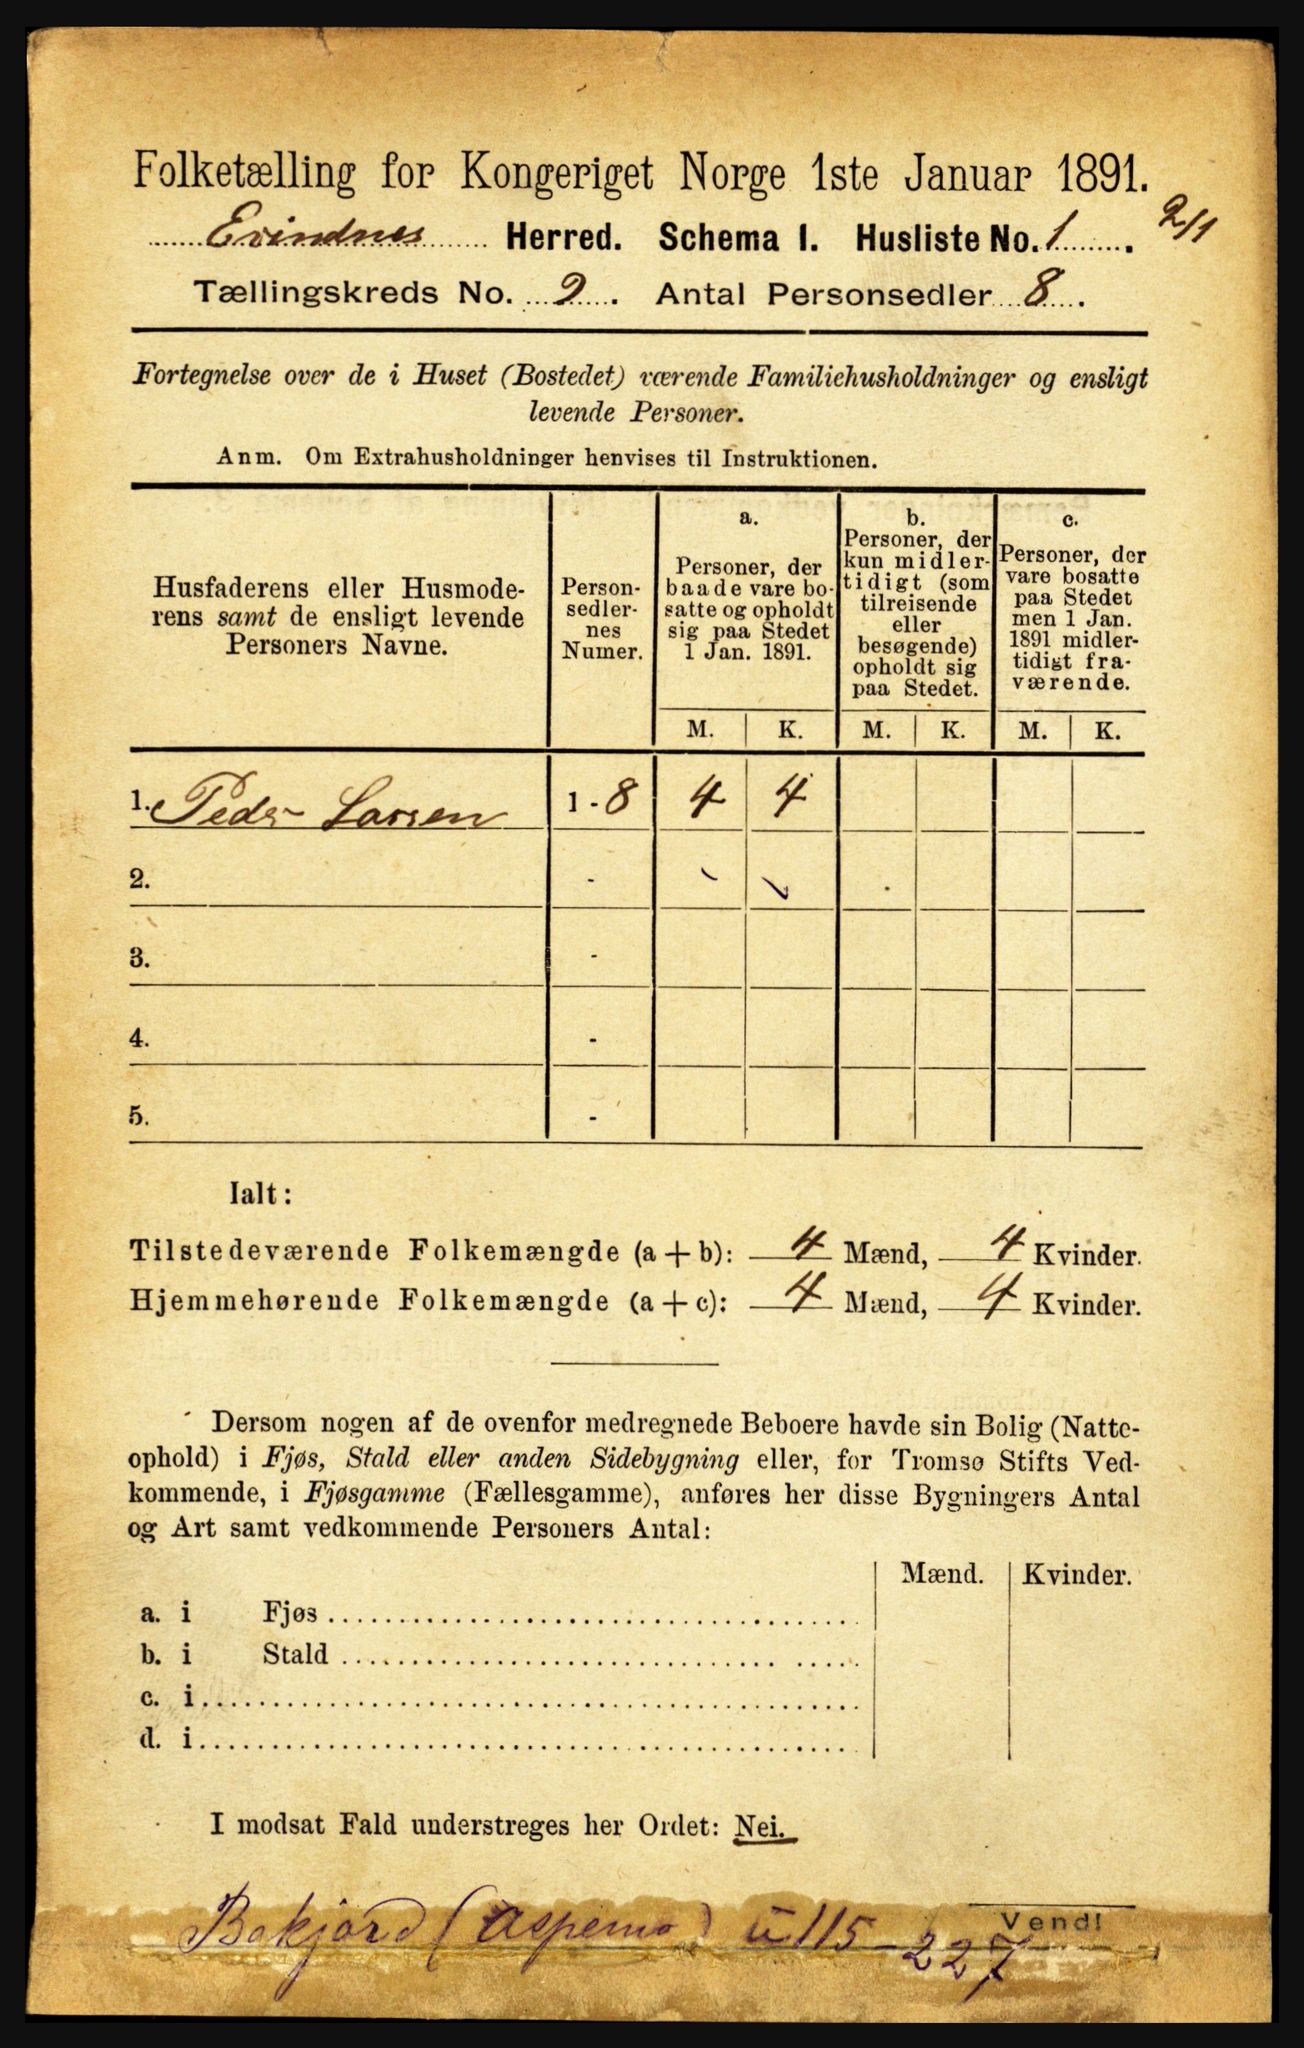 Folketælling for Kongeriget Norge 1ste Januar 1891.
Evindnes Herred. Schema I. Husliste No. 1. 2/1
Tællingskreds No. 2. Antal Personsedler 8.
Fortegnelse over de i Huset (Bostedet) værende Familiehusholdninger og ensligt
levende Personer.
Anm. Om Extrahusholdninger henvises til Instruktionen.
Husfaderens eller Husmode-
rens samt de ensligt levende
Personers Navne.
Person-
sedler-
nes
Numer.
a.
Personer, der
baade vare bo-
satte og opholdt
sig paa Stedet
1 Jan. 1891.
b.
Personer, der
kun midler-
tidigt (som
tilreisende
eller
besøgende)
opholdt sig
paa Stedet.
c.
Personer, der
vare bosatte
paa Stedet
men 1 Jan.
1891 midler-
tidigt fra-
værende.
M. K. M. K. M. K.
1. Peder Larsen 1 - 8 4 4
2. -
3. -
4. -
5. -
Ialt:
Tilstedeværende Folkemængde (a + b): 4 Mænd, 4 Kvinder.
Hjemmehørende Folkemængde (a + c): 4 Mænd, 4 Kvinder.
Dersom nogen af de ovenfor medregnede Beboere havde sin Bolig (Natte-
ophold) i Fjøs, Stald eller anden Sidebygning eller, for Tromsø Stifts Ved-
kommende, i Fjøsgamme (Fællesgamme), anføres her disse Bygningers Antal
og Art samt vedkommende Personers Antal:
Mænd. Kvinder.
a. i Fjøs
b. i Stald
c. i
d. i
I modsat Fald understreges her Ordet: Nei.
Vend!
Bokjord (Aspemo) 115-227